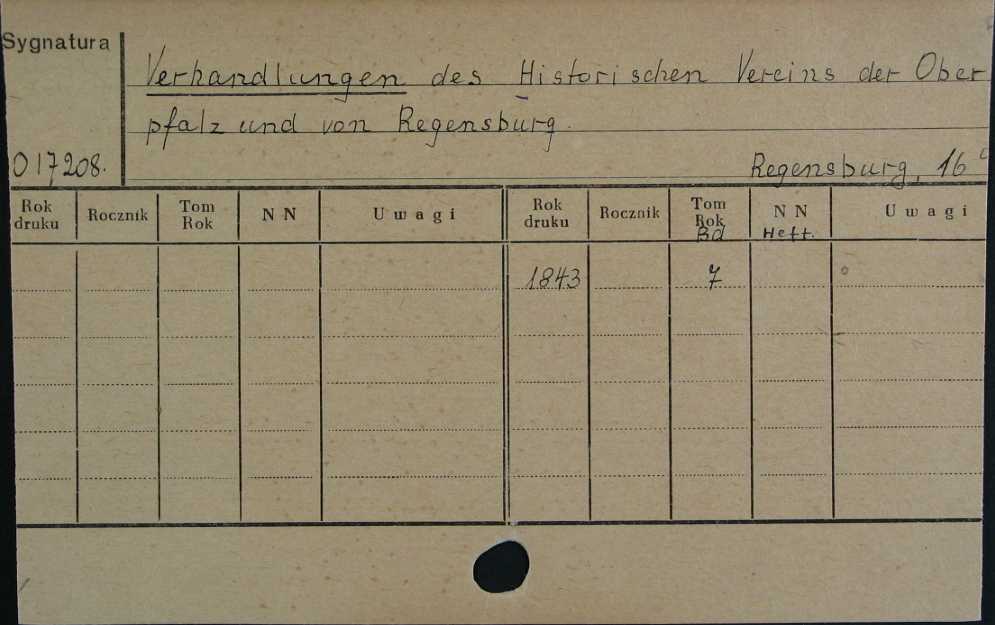 Sygnatura
Verhandlungen des Historischen Vereins der Ober
pfalz und von Regensburg.
017208.
Regensburg, 16° c
Rok druku Rocznik Tom Rok NN Uwagi Rok druku Rocznik Tom Rok Bd NN Heft. Uwagi
1843 7